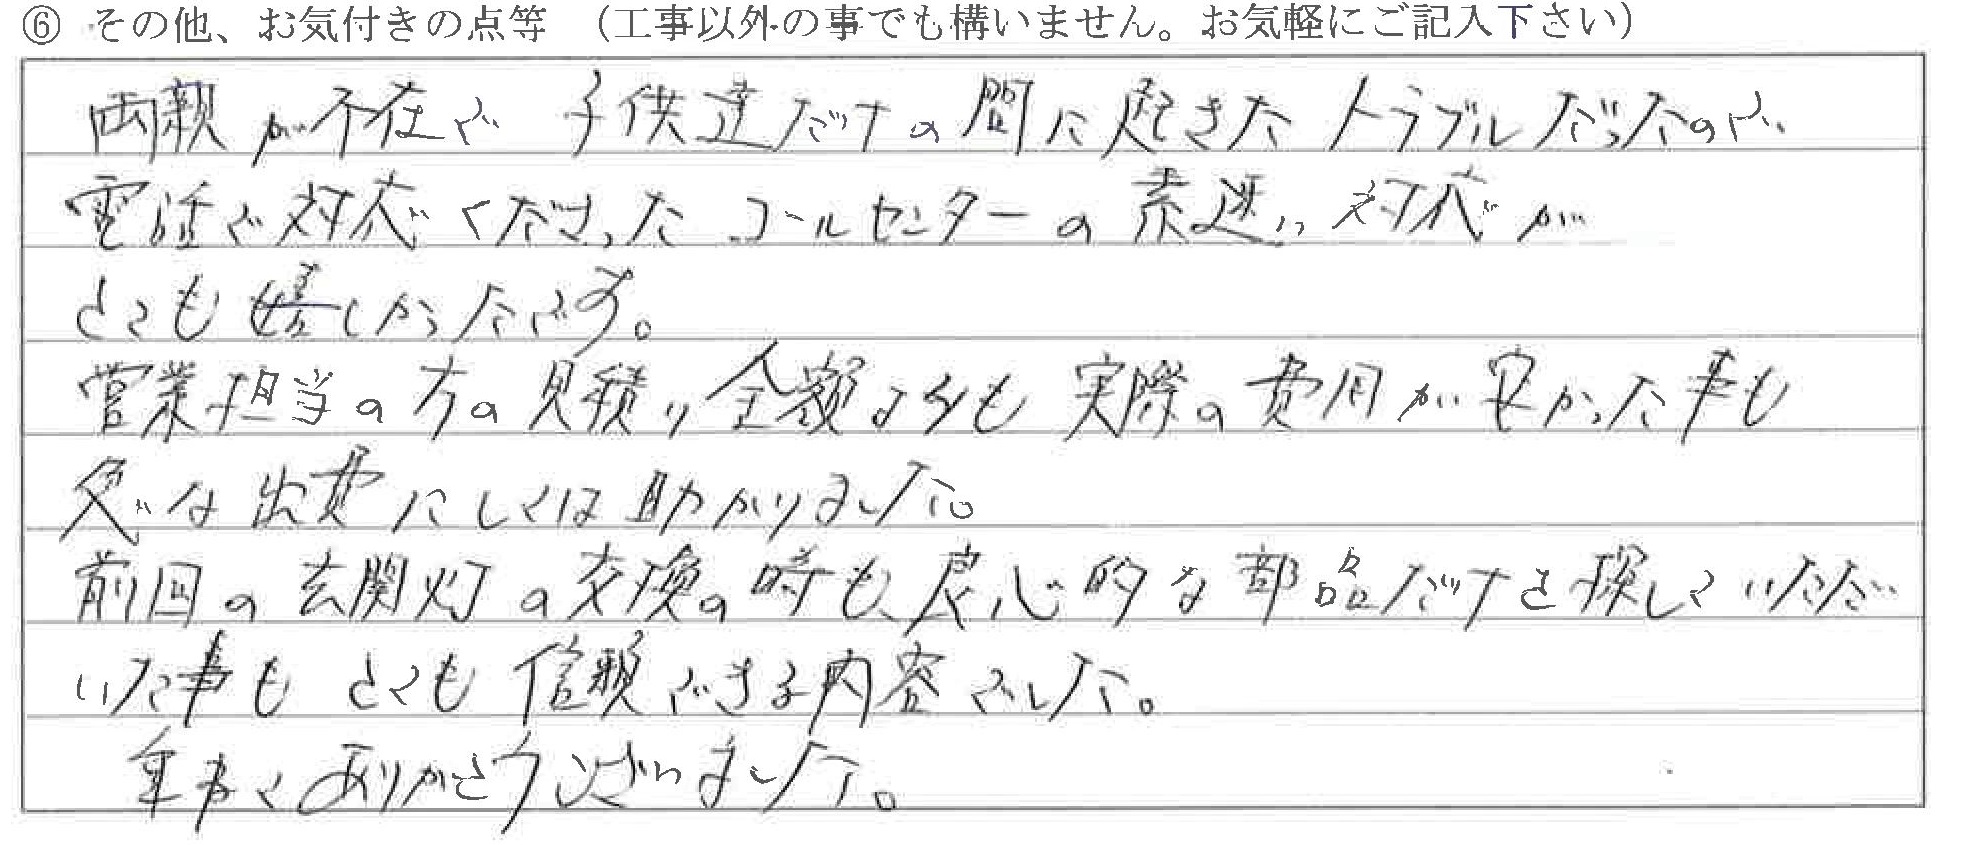 ⑥ その他、お気付きの点等 （工事以外の事でも構いません。お気軽にご記入下さい）
両親が不在で 子供達だけの間に起きたトラブルだったので、
電話で対応くださった コールセンターの素速い対応が
とても嬉しかったです。
営業担当の方の見積り金額よりも 実際の費用が安かった事も
急な出費にしては助かりました。
前回の玄関灯の交換の時も、良心的な部品だけを探していただ
いた事も とても信頼できる内容でした。
ありがとうございました。